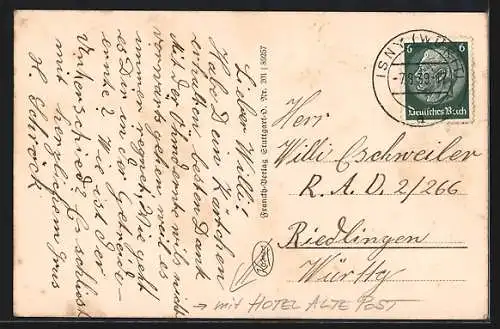 Lieber Willi!
Habe Dein Kärtchen
erhalten besten Dank
Mit der Öhmdernte wils nicht
vorwärts gehen weil es
immer regnet. Wie geht
es Dir in der Getreide-
ernte? Wie ist der
Es schliest
mit herzlichem Grus
H. Schröck
Franckh-Verlag Stuttgart-O. Nr. 201 / 89257
ISNY (WÜRTT)
-7.9.39
6 6
Deutsches Reich
Herr
Willi Eschweiler
R. A. D. 2/266
Riedlingen
Württg
→ mit HOTEL ALTE POST